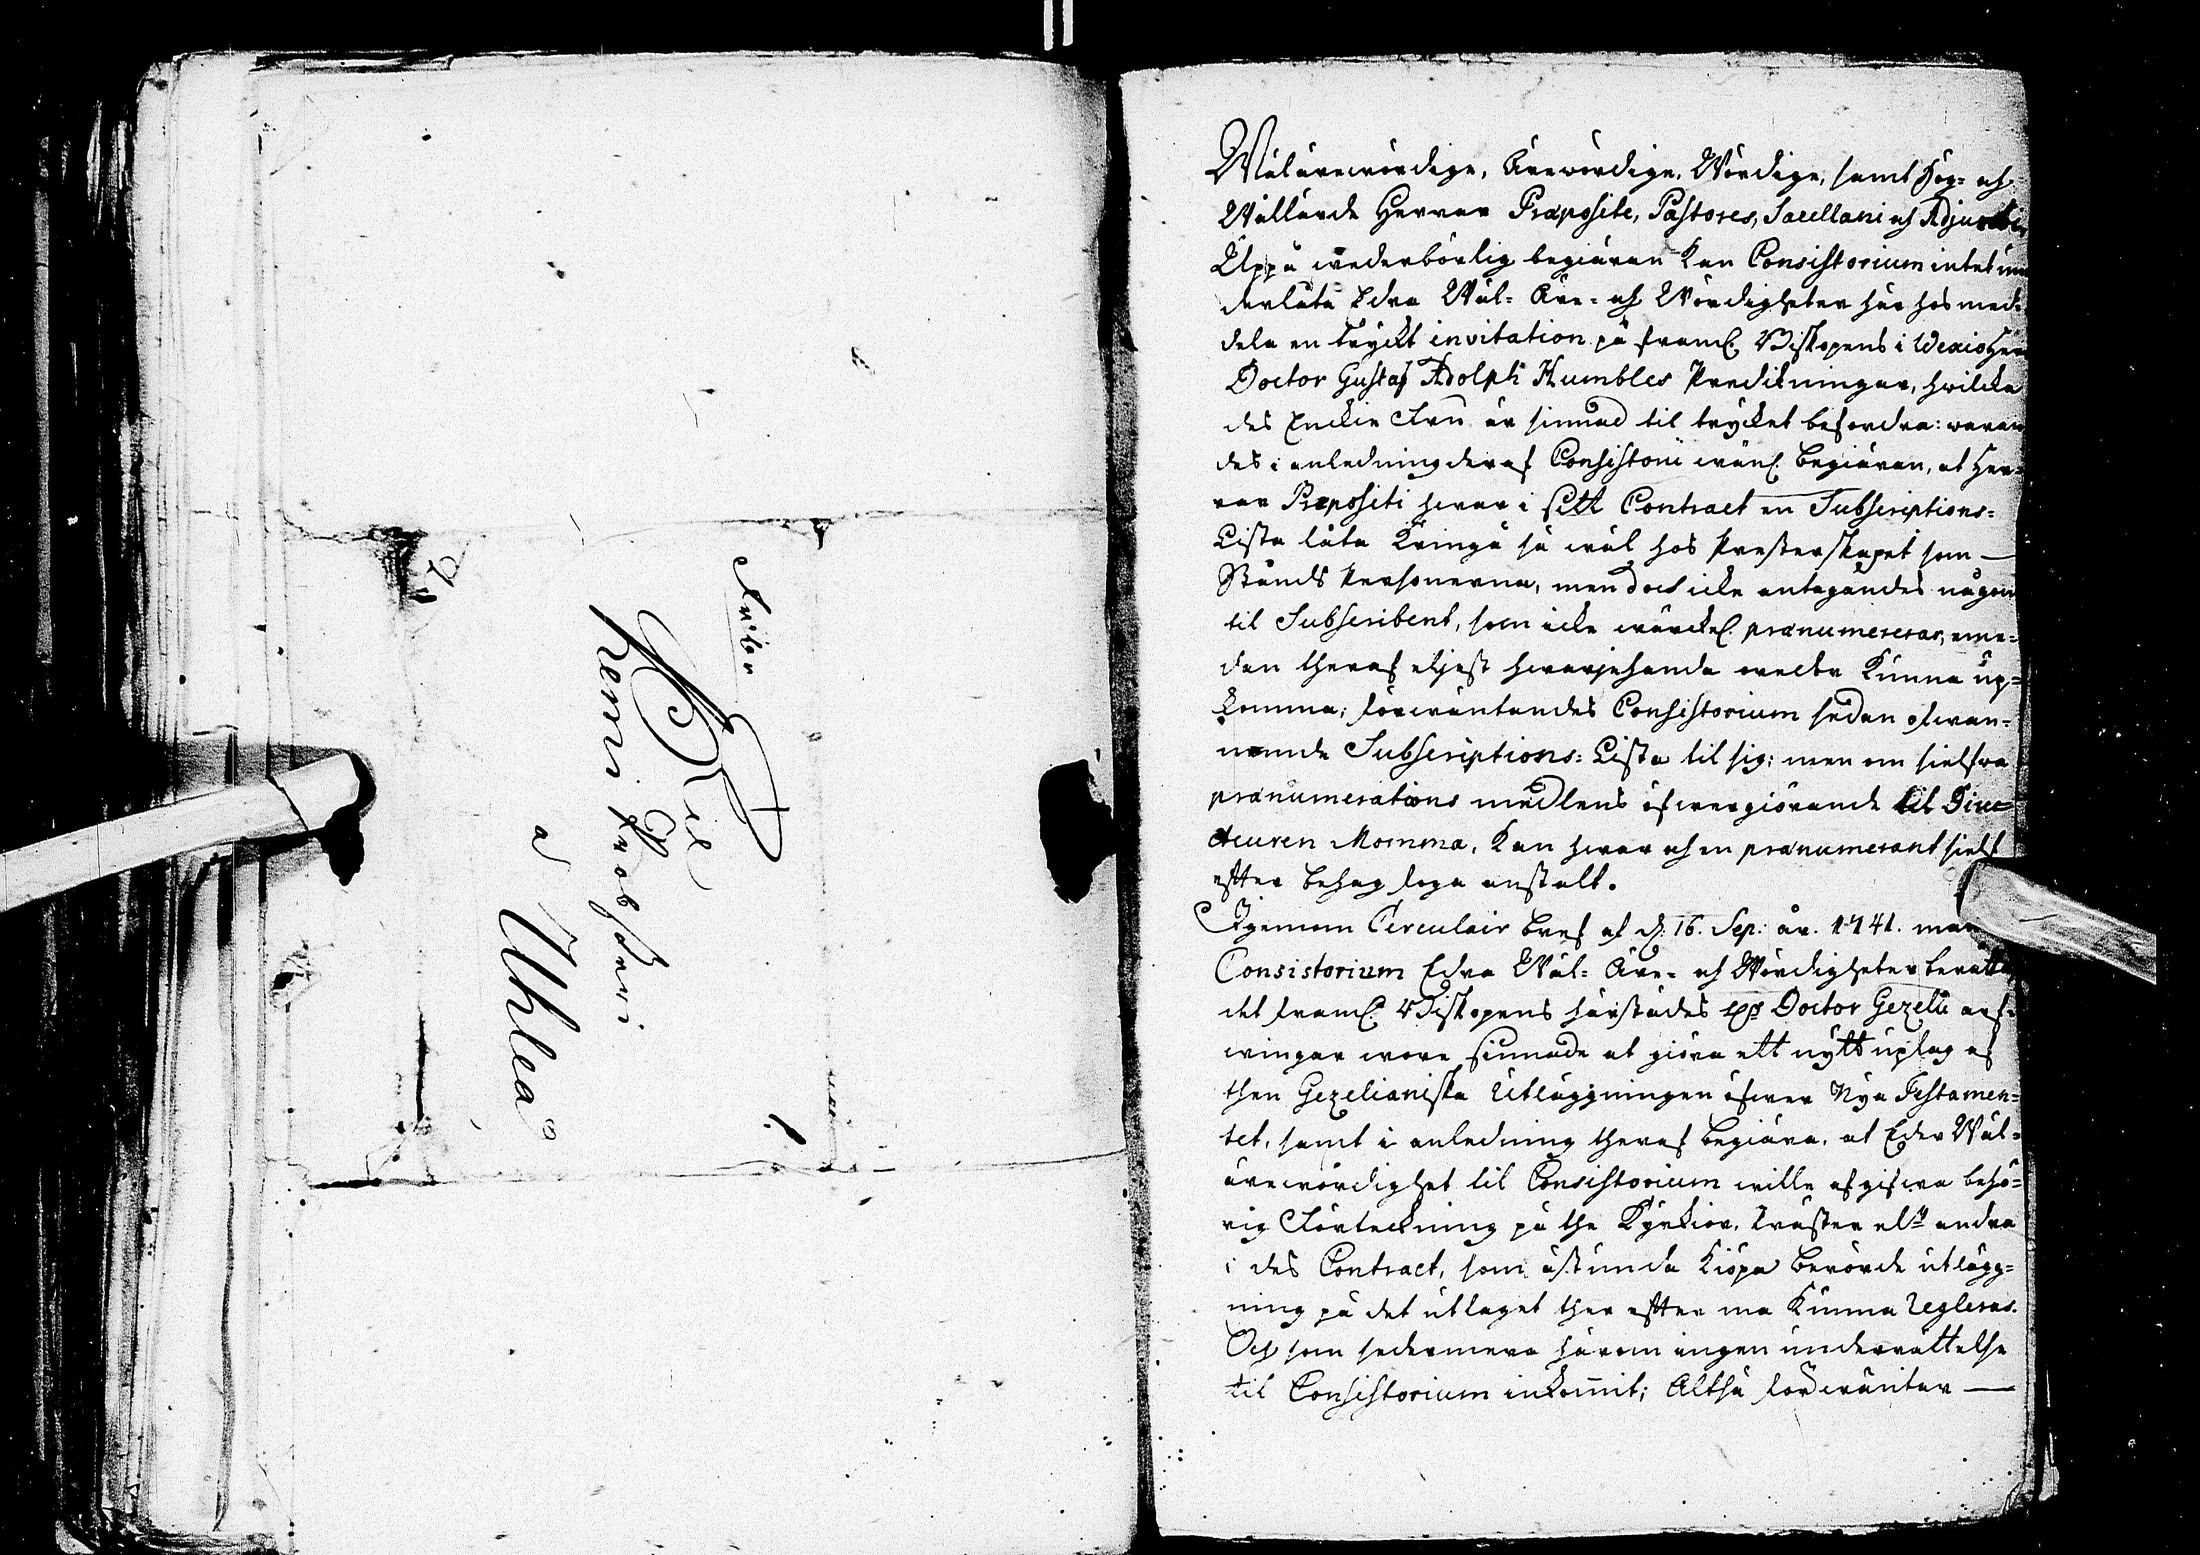 Til
Kemi Probsteri
a
Uhlea
Wälärewördige, Ärewördige, Wördige, samt Hög- och
Wällärde Herrar Præposite, Pastores, Sacellani och Adjuncti,
Uppå wederbörlig begiäran kan Consistorium intet un
derlåta Edra Wäl- Äre- och Wördigheter här hos med-
dela en tryckt invitation på framl. Biskopens i Wexio Her
Doctor Gustaf Adolph Humbles Predikningar, hwilka
des Enckie Fru är sinnad til trycket befordra: waran
des i anledning deraf Consistorii wänl. begiäran, at Her-
rar Præpositi hwar i sitt Contract en Subscriptions-
Lista låta kringå så wäl hos Presterskapet som
Stånds Personerna, men doch icke antagandes någon
til Subscribent, som icke wärckel. prænumererar, eme-
dan theraf eljest hwarjehanda oreda kunna up-
komma; förwäntandes Consistorium sedan ofwan-
nemnde Subscriptions-Lista til sig; men om sielfwa
prænumerations medlens öfwergiörande til Direc-
teuren Momma, kan hwar och en prænumerant sielf
efter behag foga anstalt.
Igenom Circulair bref af d. 16. Sep. år. 1741. man
Consistorium Edra Wäl- Äre- och Wördigheter berätta
det framl. Biskopens härstädes Doctor Gezelii arf-
wingar wore sinnade at giöra ett nytt uplag af
then Gezelianiska Utläggningen öfwer Nya Testamen-
tet, samt i anledning theraf begiära, at Eder Wäl-
ärewördighet til Consistorium wille afgifwa behö-
rig Förteckning på the Kyrkior, Präster elr andra
i des Contract, som åstunda kiöpa berörde utlägg-
ning på det uplaget ther efter må kunna regleras.
Och som sedermera härom ingen underrättelse
til Consistorium inkommit; Altså förwäntar